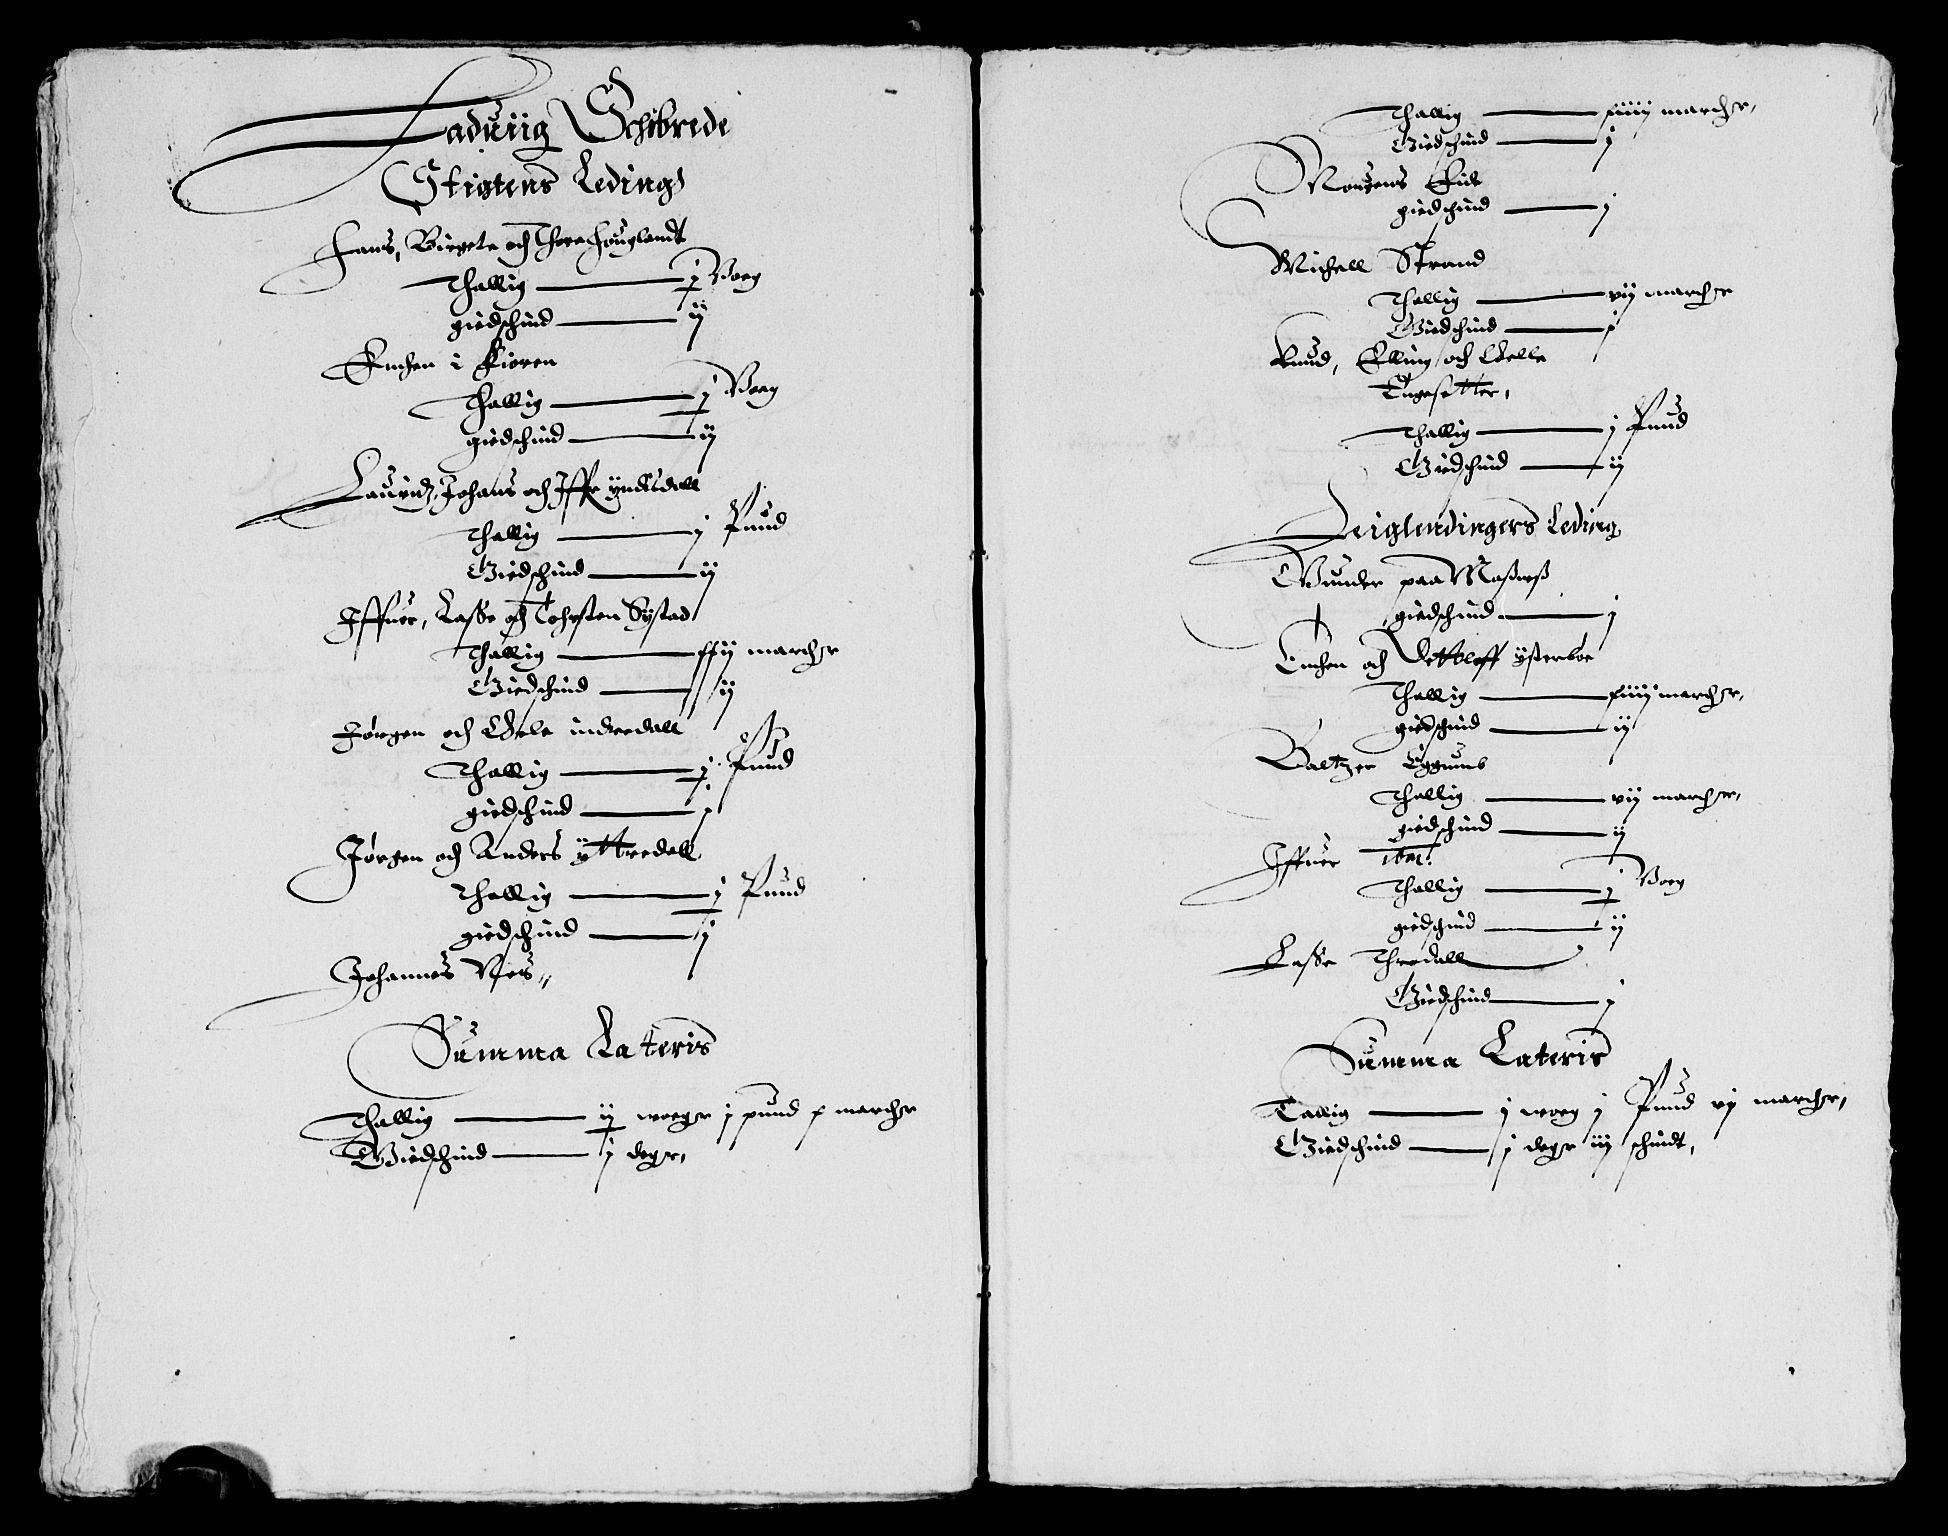 Ladwiig Schibrede
Stigtens Leding
Hans, Birgete och Thore Houglandt
Thallig j Voeg
giedschind ij
Enchen i Kioren
Thallig j Voeg
giedschind ij
Lauridz, Johans och Iffr yndstdall
Thallig j Pund
Giedschind ij
Iffuer, Lasse och Tohrsten Systad
Thallig xxij marcher
Giedschind ij
Jørgen och Oele indredall
Thallig j Pund
giedschind j
Jørgen och Anders yttredall
Thallig j Pund
giedschind j
Johannes Nes
Summa Lateris
Thallig ij woeger j pund x marcher
Giedschind j deger,
Thallig xiiij marcher,
Giedschind j
Mougens Eide
giedschind j
Michell Strand
Thallig vij marcher
Giedschind j
Knud, Elling och Oelle
Tugesetter,
Thallig j Pund
Giedschind ij
Leiglendingers Leding
Gunder paa Massnes
giedschind j
Enchen och Dettloff ysterboe
Thallig xiiij marcher,
giedschind ij
Baltzer Eggumb
Thallig vij marcher,
giedschind ij
Iffuer ibm:
Thallig j Voeg
giedschind ij
Lasse Thredall
Giedschind j
Summa Lateris
Tallig j woeg j Pund vj marcher,
Giedschind j deger iij schindt,